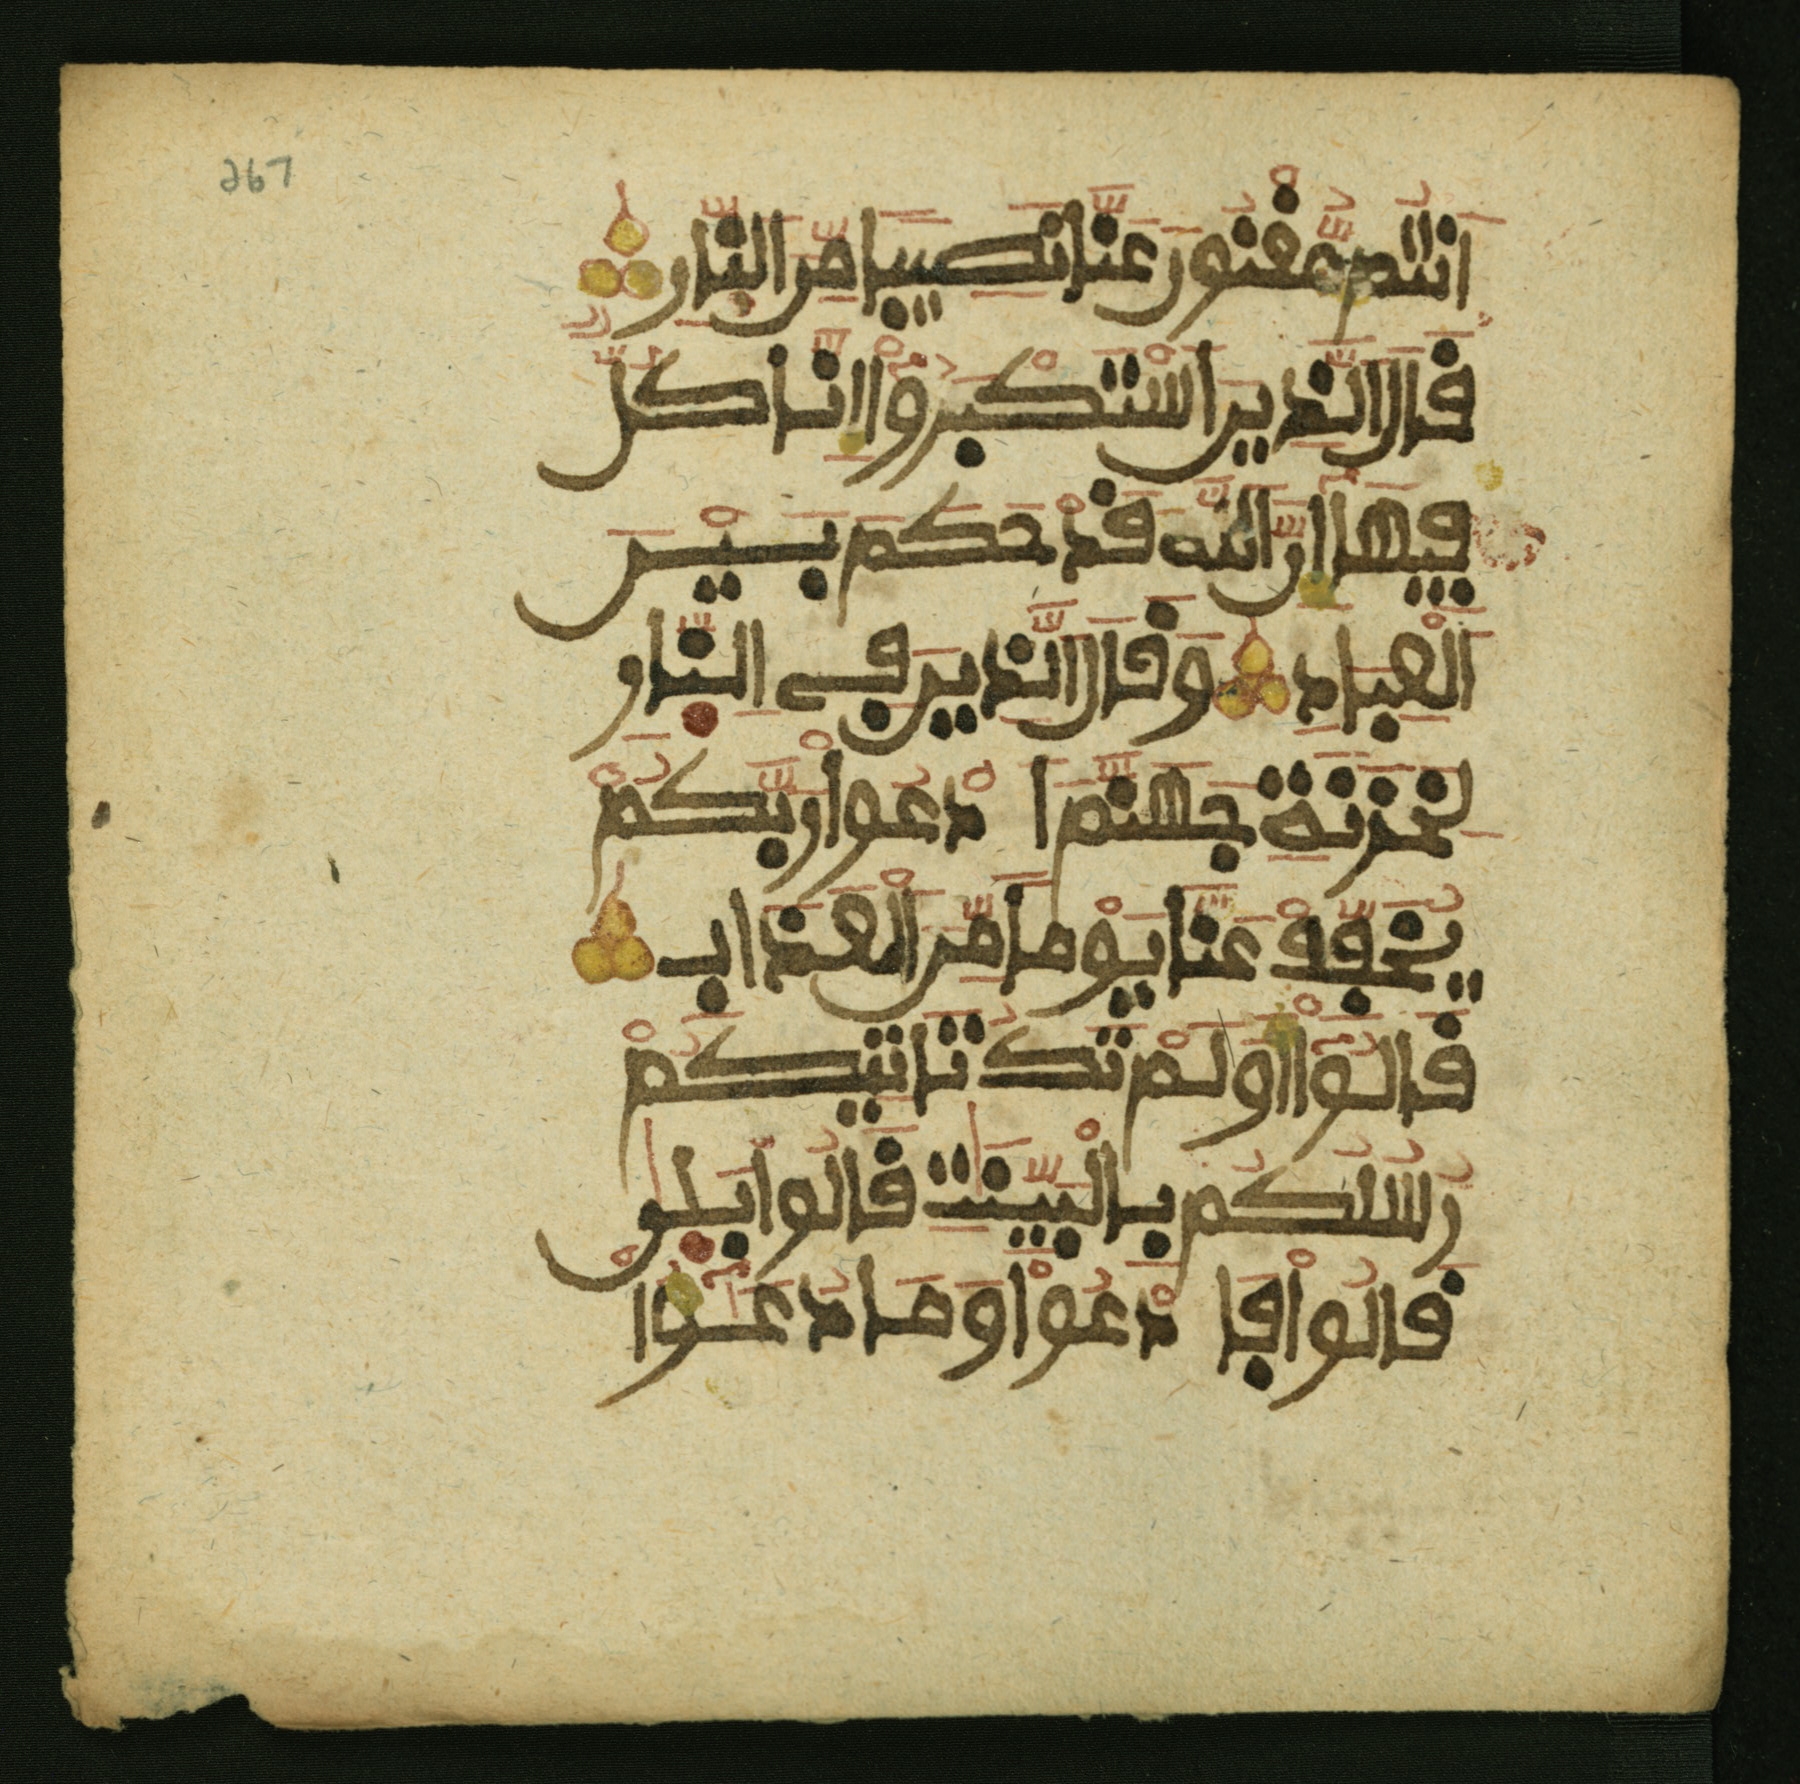 267
أَنتُم مُّغْنُونَ عَنَّا نَصِيبًا مِّنَ النَّارِ
قَالَ الَّذِينَ اسْتَكْبَرُوٓا إِنَّا كُلٌّ
فِيهَآ إِنَّ اللَّهَ قَدْ حَكَمَ بَيْنَ
الْعِبَادِ وَقَالَ الَّذِينَ فِى النَّارِ
لِخَزَنَةِ جَهَنَّمَ ادْعُوا رَبَّكُمْ
يُخَفِّفْ عَنَّا يَوْمًا مِّنَ الْعَذَابِ
قَالُوٓا أَوَلَمْ تَكُ تَاتِيكُمْ
رُسُلُكُم بِالْبَيِّنَٰتِ قَالُوا بَلَىٰ
قَالُوا فَادْعُوا وَمَا دُعَٰٓؤُا